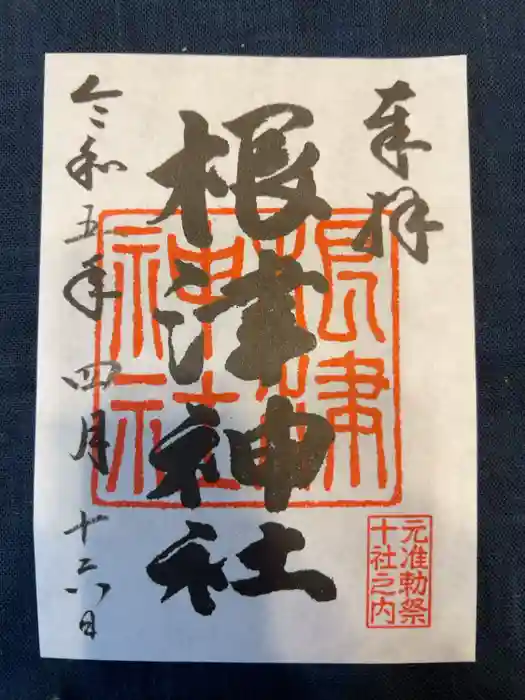 奉拝
根津神社
根津
神社
元准勅祭
十社之内
令和五年四月十六日